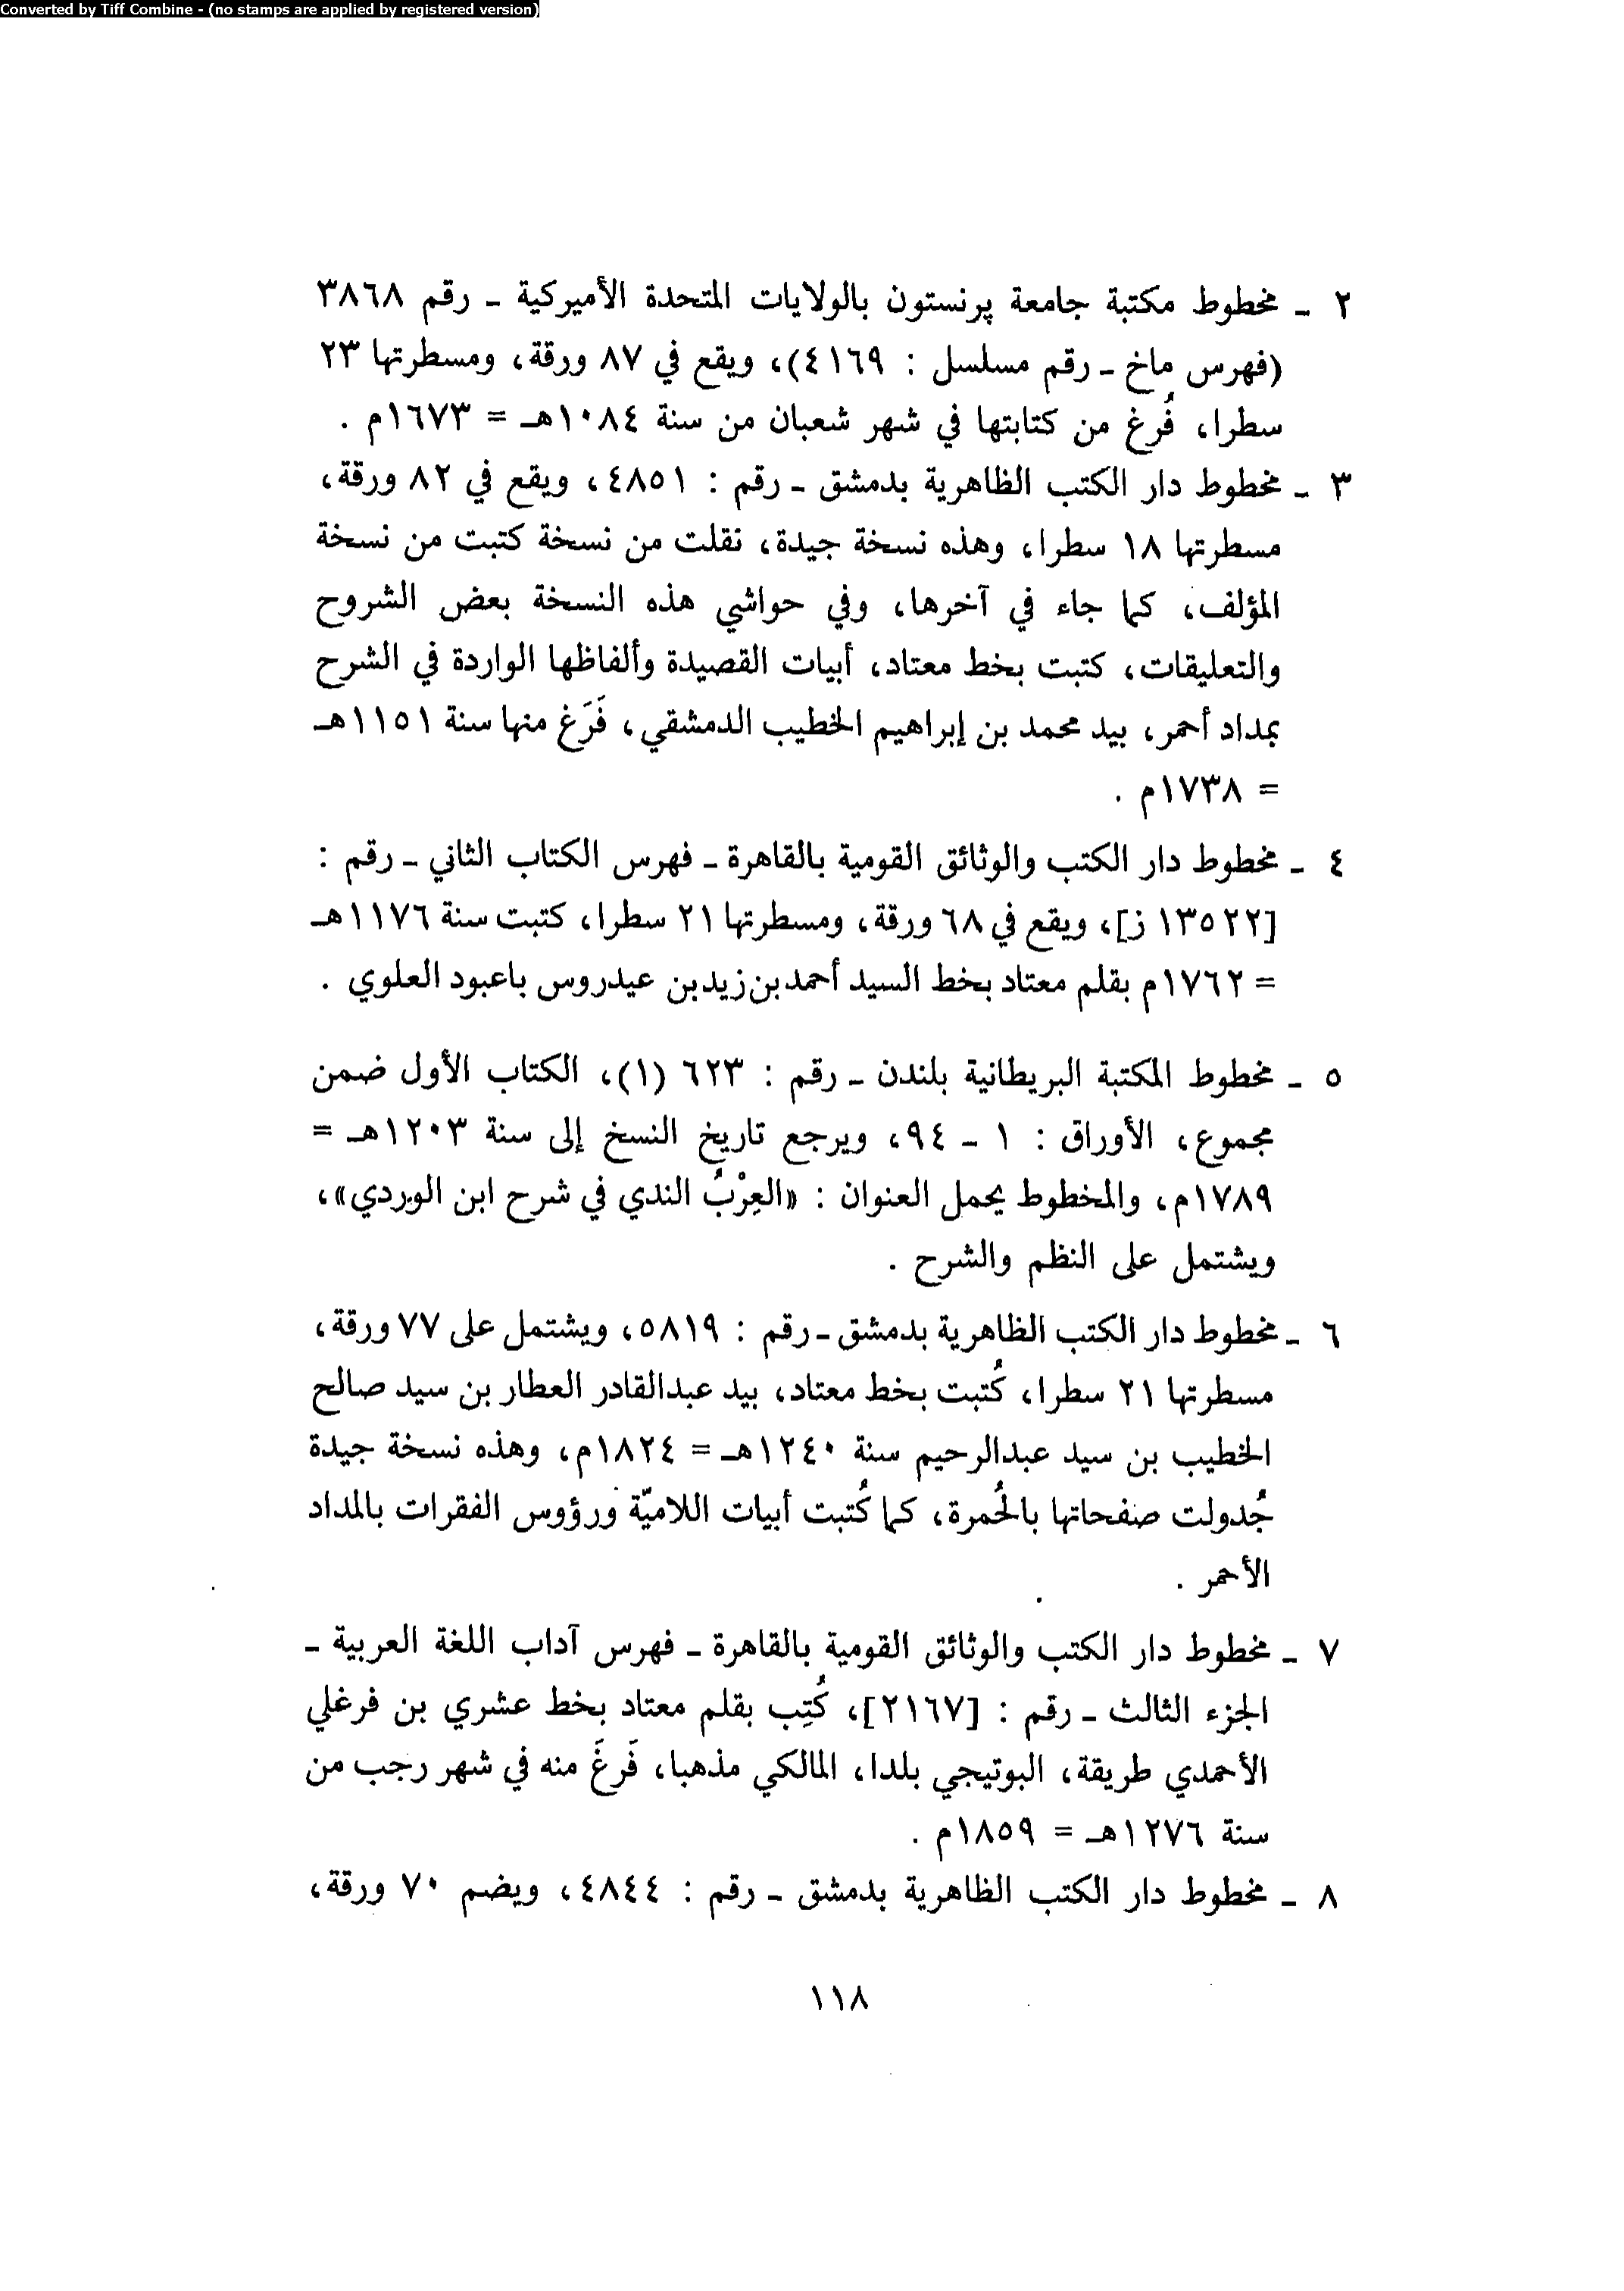 Converted by Tiff Combine - (no stamps are applied by registered version)
٢ ـ مخطوط مكتبة جامعة پرنستون بالولايات المتحدة الأميركية ـ رقم ٣٨٦٨
(فهرس ماخ ـ رقم مسلسل : ٤١٦٩)، ويقع في ٨٧ ورقة، ومسطرتها ٢٣
سطرا، فُرغ من كتابتها في شهر شعبان من سنة ١٠٨٤هـ = ١٦٧٣م .
٣ ـ مخطوط دار الكتب الظاهرية بدمشق ـ رقم : ٤٨٥١، ويقع في ٨٢ ورقة،
مسطرتها ١٨ سطرا، وهذه نسخة جيدة، نقلت من نسخة كتبت من نسخة
المؤلف، كما جاء في آخرها، وفي حواشي هذه النسخة بعض الشروح
والتعليقات، كتبت بخط معتاد، أبيات القصيدة وألفاظها الواردة في الشرح
بمداد أحمر، بيد محمد بن إبراهيم الخطيب الدمشقي، فَرَغ منها سنة ١١٥١هـ
= ١٧٣٨م .
٤ ـ مخطوط دار الكتب والوثائق القومية بالقاهرة ـ فهرس الكتاب الثاني ـ رقم :
[١٣٥٢٢ ز]، ويقع في ٦٨ ورقة، ومسطرتها ٢١ سطرا، كتبت سنة ١١٧٦هـ
= ١٧٦٢م بقلم معتاد بخط السيد أحمد بن زيد بن عيدروس باعبود العلوي .
٥ ـ مخطوط المكتبة البريطانية بلندن ـ رقم : ٦٢٣ (١)، الكتاب الأول ضمن
مجموع، الأوراق : ١ ـ ٩٤، ويرجع تاريخ النسخ إلى سنة ١٢٠٣هـ =
١٧٨٩م، والمخطوط يحمل العنوان : «العِرْبُ الندي في شرح ابن الوردي»،
ويشتمل على النظم والشرح .
٦ ـ مخطوط دار الكتب الظاهرية بدمشق ـ رقم : ٥٨١٩، ويشتمل على ٧٧ ورقة،
مسطرتها ٢١ سطرا، كُتبت بخط معتاد، بيد عبدالقادر العطار بن سيد صالح
الخطيب بن سيد عبدالرحيم سنة ١٢٤٠هـ = ١٨٢٤م، وهذه نسخة جيدة
جُدولت صفحاتها بالحُمرة، كما كُتبت أبيات اللاميّة ورؤوس الفقرات بالمداد
الأحمر .
٧ ـ مخطوط دار الكتب والوثائق القومية بالقاهرة ـ فهرس آداب اللغة العربية ـ
الجزء الثالث ـ رقم : [٢١٦٧]، كُتِب بقلم معتاد بخط عشري بن فرغلي
الأحمدي طريقة، البوتيجي بلدا، المالكي مذهبا، فَرغَ منه في شهر رجب من
سنة ١٢٧٦هـ = ١٨٥٩م .
٨ ـ مخطوط دار الكتب الظاهرية بدمشق ـ رقم : ٤٨٤٤، ويضم ٧٠ ورقة،
١١٨